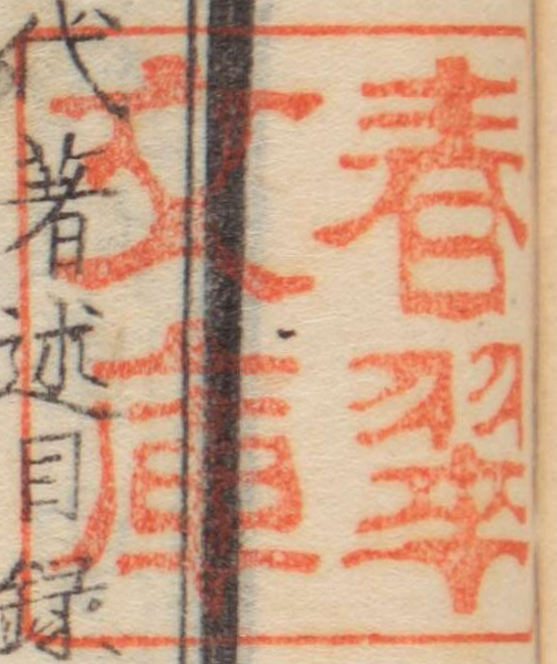 春翠
文庫
代著述目録